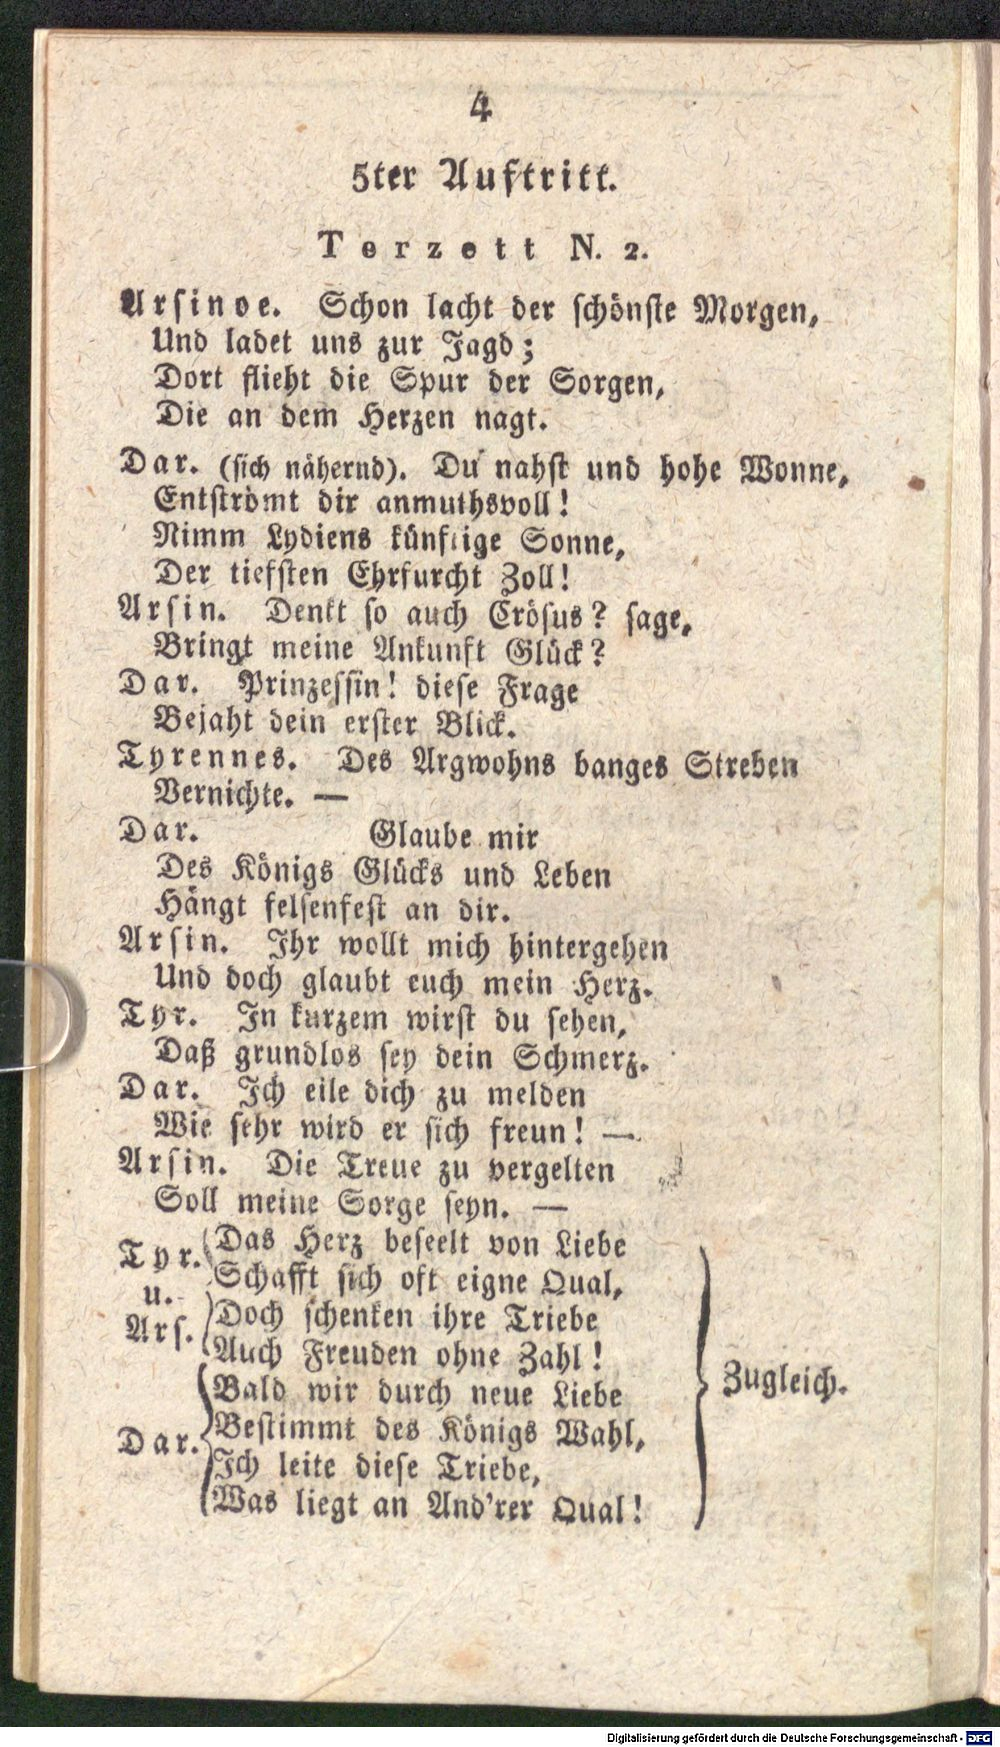 4
5ter Auftritt.
Terzett N. 2.
Arsinoe. Schon lacht der schönste Morgen,
Und ladet uns zur Jagd;
Dort flieht die Spur der Sorgen,
Die an dem Herzen nagt.
Dar. (sich nähernd). Du nahst und hohe Wonne,
Entströmt dir anmuthsvoll!
Nimm Lydiens künftige Sonne,
Der tiefsten Ehrfurcht Zoll!
Arsin. Denkt so auch Crösus? sage,
Bringt meine Ankunft Glück?
Dar. Prinzessin! diese Frage
Bejaht dein erster Blick.
Tyrennes. Des Argwohns banges Streben
Vernichte. —
Dar. Glaube mir
Des Königs Glücks und Leben
Hängt felsenfest an dir.
Arsin. Ihr wollt mich hintergehen
Und doch glaubt euch mein Herz.
Tyr. In kurzem wirst du sehen,
Daß grundlos sey dein Schmerz.
Dar. Ich eile dich zu melden
Wie sehr wird er sich freun! —
Arsin. Die Treue zu vergelten
Soll meine Sorge seyn. —
Tyr. u. Ars. Das Herz beseelt von Liebe
Schafft sich oft eigne Qual,
Doch schenken ihre Triebe
Auch Freuden ohne Zahl!
Dar. Bald wir durch neue Liebe
Bestimmt des Königs Wahl,
Ich leite diese Triebe,
Was liegt an And'rer Qual!
Zugleich.
Digitalisierung gefördert durch die Deutsche Forschungsgemeinschaft - DFG